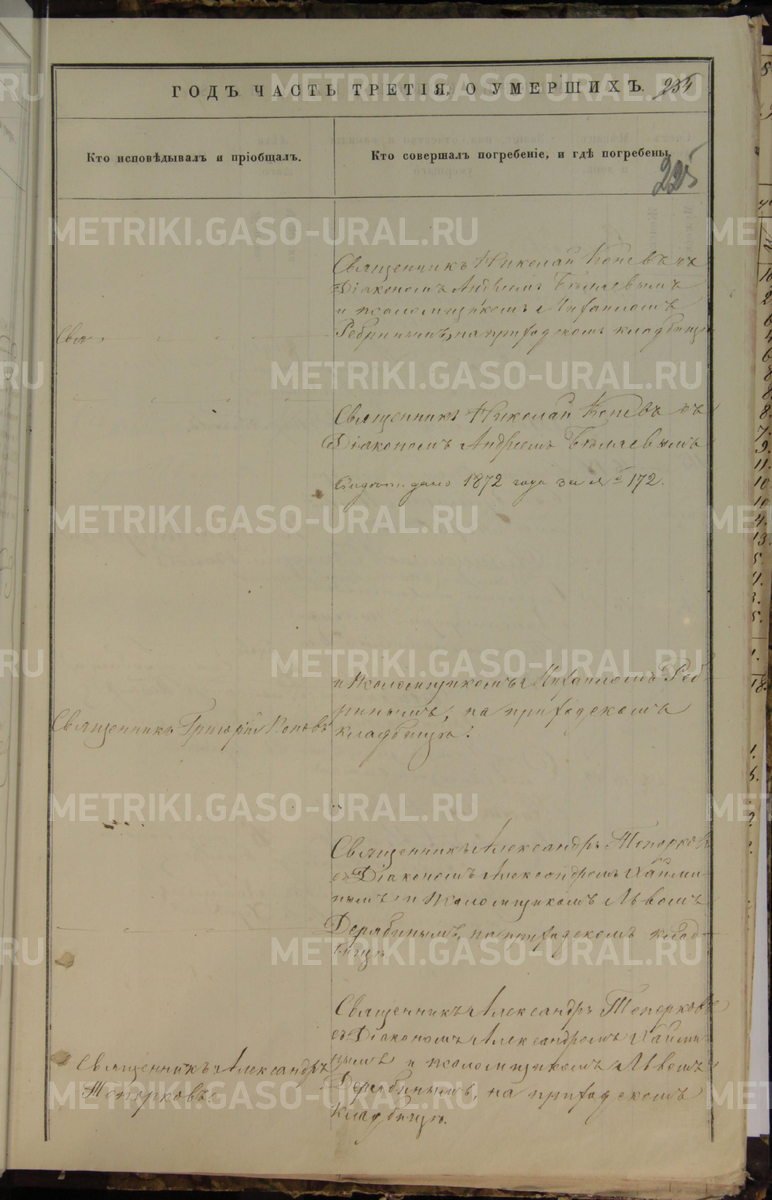 ГОДЪ ЧАСТЬ ТРЕТІЯ, О УМЕРШИХЪ. 235
Кто исповѣдывалъ и пріобщалъ.
Кто совершалъ погребеніе, и гдѣ погребены.
225
Священникъ Николай Коневъ съ
Діакономъ Андреемъ Бѣляевымъ
и псаломщикомъ Михаиломъ
Ребринымъ, на приходскомъ кладбищѣ
Свя
Священникъ Николай Коневъ съ
Діакономъ Андреемъ Бѣляевымъ
дано 1872 года за № 172.
и псаломщикомъ Михаиломъ Реб
ринымъ, на приходскомъ
кладбищѣ.
Священникъ Григорій Коневъ
Священникъ Александръ Топорковъ
съ Діакономъ Александромъ
нымъ и псаломщикомъ Львомъ
Дерябинымъ, на приходскомъ клад-
бищѣ
Священникъ Александръ Топорковъ
съ Діакономъ Александромъ
нымъ и псаломщикомъ Львомъ
Дерябинымъ, на приходскомъ
кладбищѣ.
Священникъ Александръ
Топорковъ
METRIKI.GASO-URAL.RU